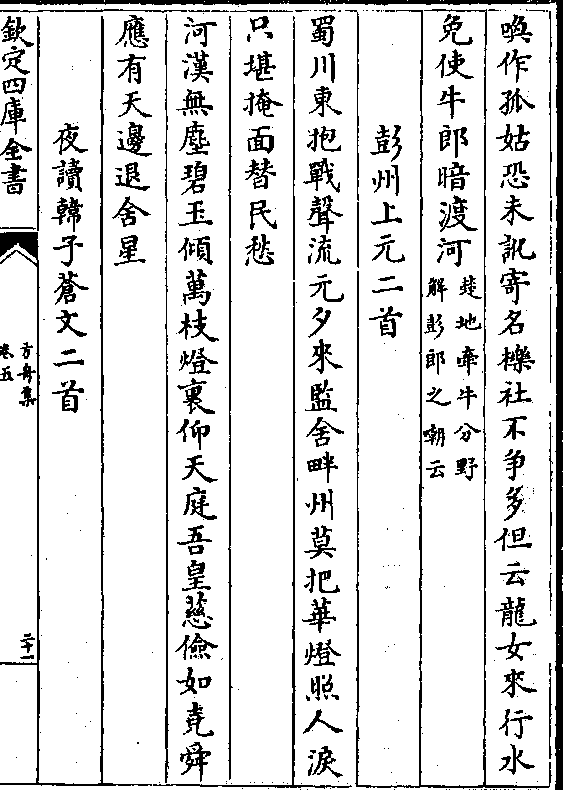 喚作孤姑恐未訛寄名櫟社不争多但云龍女來行水
免使牛郎暗渡河
楚地牽牛分野
解彭郎之嘲云
彭州上元二首
蜀川東抱戰聲流元夕來監舍畔州莫把華燈照人淚
只堪掩面替民愁
河漢無塵碧玉傾萬枝燈裏仰天庭吾皇慈儉如堯舜
應有天邊退舍星
夜讀韓子蒼文二首
欽定四庫全書
方舟集
卷五
二十一